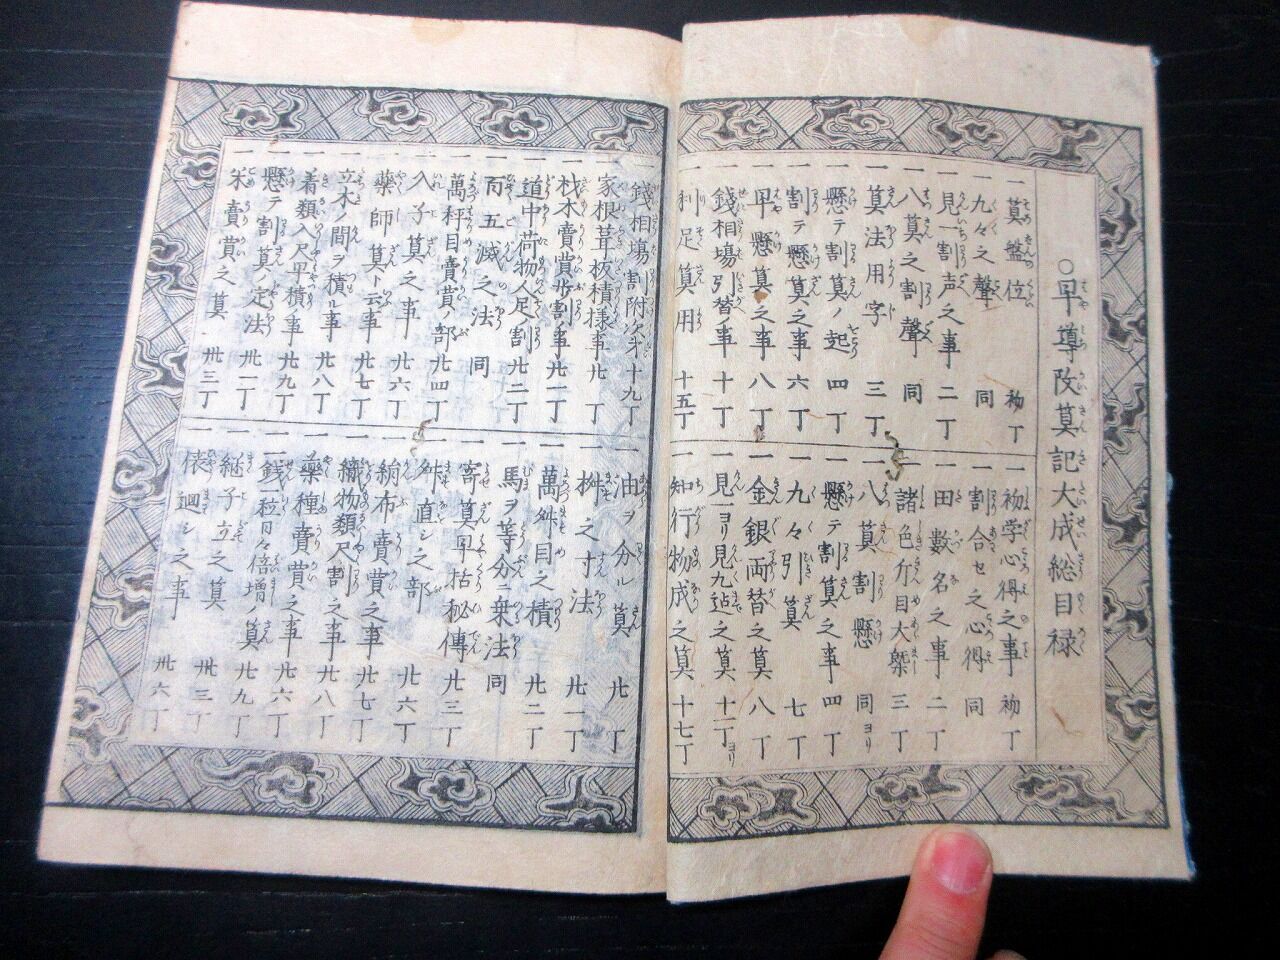 ○早導改算記大成総目禄
一算盤位 初丁
一九々之聲 同
一見一割声之事 二丁
一八算之割聲 同
一算法用字 三丁
一懸テ割算ノ起 四丁
一割テ懸算之事 六丁
一早懸算之事 八丁
一錢相場引替事 十丁
一利足算用 十五丁
一初学心得之事 初丁
一割合セ之心得 同
一田數名之事 二丁
一諸色斤目大槩 三丁
一八算割懸 同ヨリ
一懸テ割算之事 四丁
一九々引算 七丁
一金銀両替之算 八丁
一見一ヨリ見九迠之算 十一丁ヨリ
一知行物成之算 十七丁
一錢相塲割附次才 十九丁
一家根葺板積様事 廿丁
一材木賣買歩割事 廿一丁
一道中荷物人足割 廿二丁
一百五减之法 同
一萬秤目賣買ノ部 廿四丁
一入子算之事 廿六丁
一藥師算ト云事 廿七丁
一立木ノ間ヲ積ル事 廿八丁
一着類入尺平積ノ事 廿九丁
一懸テ割算定法 卅二丁
一米賣買之算 卅三丁
一油ヲ分ル算 廿丁
一枡之寸法 廿一丁
一萬舛目之積 廿二丁
一馬ヲ等分ニ乗法 同
一寄算早祜秘傳 廿三丁
一舛直シ之部 廿六丁
一絹布賣買之事 廿七丁
一織物類尺割之事 廿八丁
一藥種賣買之事 廿六丁
一錢一粒日々倍增ノ算 廿九丁
一継子立之算 卅三丁
一俵廻シ之事 卅六丁